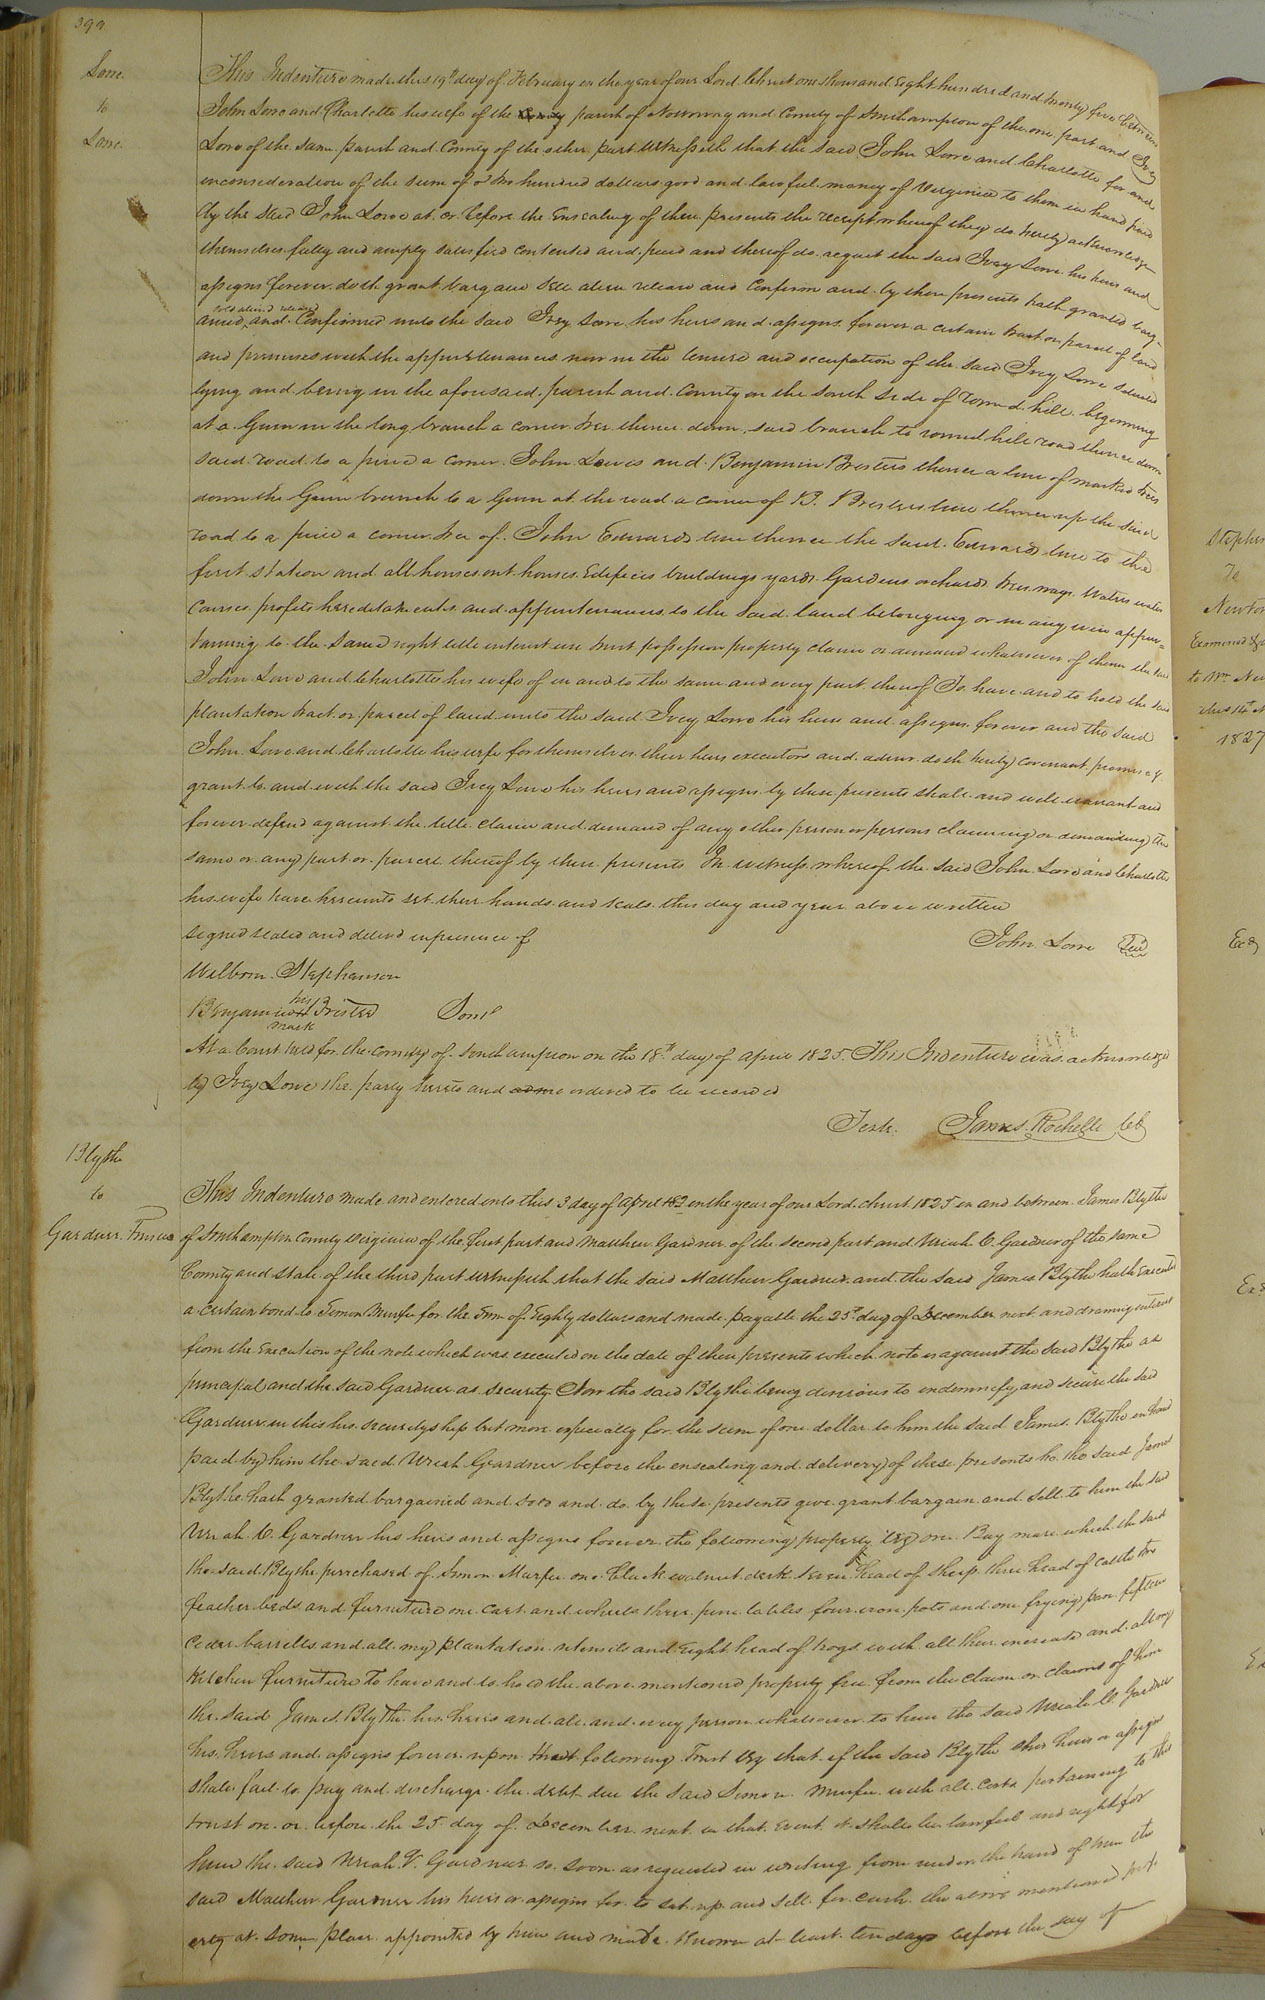 399
Lowe
to
Lowe
This Indenture made this 19th day of February in the year of our Lord Christ one thousand Eight hundred and twenty five between
John Lowe and Charlotte his wife of the parish of Nottoway and County of Southampton of the one part and Ivey
Lowe of the same parish and County of the other part Witnesseth that the said John Lowe and Charlotte for and
inconsideration of the sum of two hundred dollars good and lawful money of Virginia to them in hand paid
by the said John Lowe at or before the Ensealing of these presents the receipt whereof they do hereby acknowledge
themselves fully and amply satisfied contented and paid and thereof do acquit the said Ivey Lowe his heirs and
assigns forever doth grant bargain Sell alien release and Confirm and by these presents hath granted barg-
sold aliened released
ained and Confirmed unto the said Ivey Lowe his heirs and assigns forever a certain tract or parcel of land
and premises with the appurtenances now in the tenure and occupation of the said Ivey Lowe situated
lying and being in the aforesaid parish and County on the south side of round hill begining
at a Gum in the long branch a corner tree thence down said branch to round hill road thence down
said road to a pine a corner John Lowes and Benjamin Bristers thence a line of marked trees
down the Gum branch to a Gum at the road a corner of B. Bristers line thence up the said
road to a pine a corner tree of John Edwards line thence the said Edwards line to the
first station and all houses out houses Edifices buildings yards Gardens orchards trees ways waters water
Courses profits hereditaments and appurtenances to the said land belonging or in any wise apper=
taining to the Same right title interest use trust possession property claim or demand whatsoever of them the said
John Lowe and Charlotte his wife of in and to the same and every part thereof To have and to hold the said
plantation tract or parcel of land unto the said Ivey Lowe his heirs and assigns forever and the said
John Lowe and Charlotte his wife for themselves their heirs executors and admr. doth hereby covenant promise &
grant to and with the said Ivey Lowe his heirs and assigns by these presents shall and will warrant and
forever defend against the title claim and demand of any other person or persons claiming or demanding the
same or any part or parcel thereof by these presents In witness whereof the said John Lowe and Charlotte
his wife have hereunto set their hands and seals this day and year above written
signed sealed and delivd in presence of John Lowe Seal
Welborn Stephenson
Benjamin his mark Brister
At a Court held for the county of Southampton on the 18th day of April 1825. This Indenture was acknowledged
by Ivey Lowe the party hereto and ordered to be recorded
Teste. James Rochelle Cb
Blythe
to
Gardner Trustee
This Indenture made and entered into this 3 day of April 182 in the year of our Lord christ 1825 in and between James Blythe
of Southampton County Virginia of the first part and Matthew Gardner of the second part and Uriah C. Gardner of the same
County and state of the third part witnesseth that the said Matthew Gardner and the said James Blythe hath Executed
a certain bond to Simon Murfee for the Sum of Eighty dollars and made payable the 25th day of December next and drawing interest
from the Execution of the note which was executed on the date of these presents which note is against the said Blythe as
principal and the said Gardner as security Now the said Blythe being desirous to indemnify and secure the said
Gardner in this his securityship but more especially for the sum of one dollar to him the said James Blythe in hand
paid by him the said Uriah Gardner before the ensealing and delivery of these presents he the said James
Blythe hath granted bargained and sold and do by these presents give grant bargain and sell to him the said
Uriah C. Gardner his heirs and assigns forever the following property Viz one Bay mare which the said
the said Blythe purchased of Simon Murfee one black walnut desk seven head of sheep three head of cattle two
feather beds and furniture one cart and wheels three pine tables four iron pots and one frying pan fifteen
Cider barrells and all my plantation utensils and Eight head of hogs with all their increase and all my
kitchen furniture To have and to hold the above mentioned property free from the claim or claims of him
the said James Blythe his heirs and all and every person whatsoever to him the said Uriah C. Gardner
his heirs and assigns forever upon that following Trust Viz that if the said Blythe his heirs or assigns
shall fail to pay and discharge the debt due the said Simon Murfee with all costs pertaining to this
trust on or before the 25 day of December next in that Event it shall be lawful and right for
him the said Uriah C. Gardner so soon as requested in writing from under the hand of him the
said Matthew Gardner his heirs or assigns for to set up and sell for cash the above mentioned prop-
erty at some place appointed by him and made known at least ten days before the day of
Stephen
To
Newton
Examined &
to Wm. New
this 14th
1827